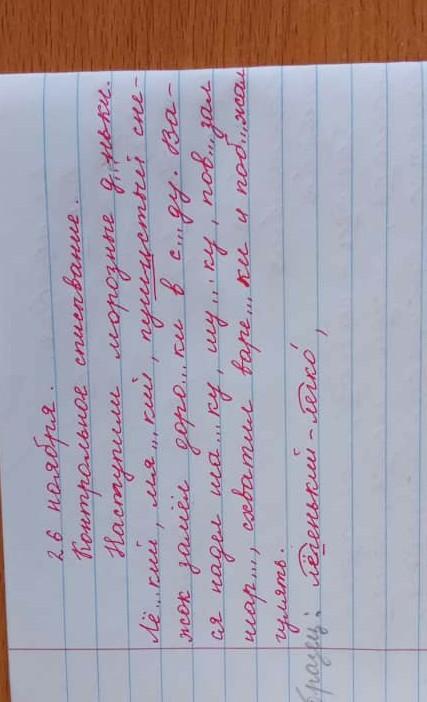 26 ноября.
Контрольное списывание.
Наступили морозные д...ньки.
Лё...кий, мя...кий, пушистый сне-
жок замёл доро...ки в с...ду. Ва-
ся надел ша...ку, шу...ку, пов...зал
шар..., схватил варе...ки и поб...жал
гулять.
бразец: лёгенький - легко,